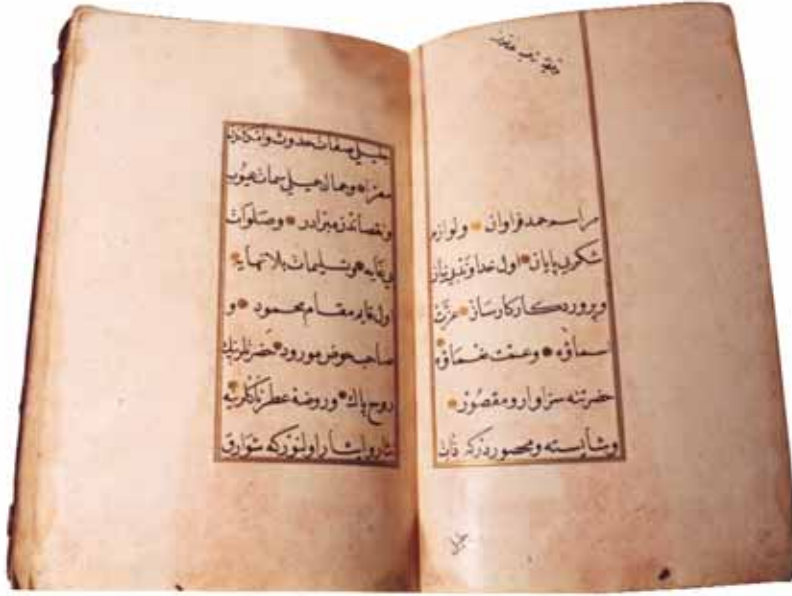 مراسم حمد فراوان و لوازم
شكر بى پايان اول خداوند بى نياز
و پروردكار كارساز عزت
اسماؤه وعمت نعماؤه
حضرتنه سزاوار و مقصور
و شايسته و محصور دركه ذات
جليل
جليلى صفات حدوث و
معرا و جمال جميلى سمات عيوب
و نقصاندن مبرادر و صلوات
بى غايه و تسليمات بلا نهايه
اول قايم مقام محمود و
صاحب حوض مورود حضرتلرينك
روح پاك و روضه عطرناكلرينه
نثار و ايثار اولنور كه شوارق